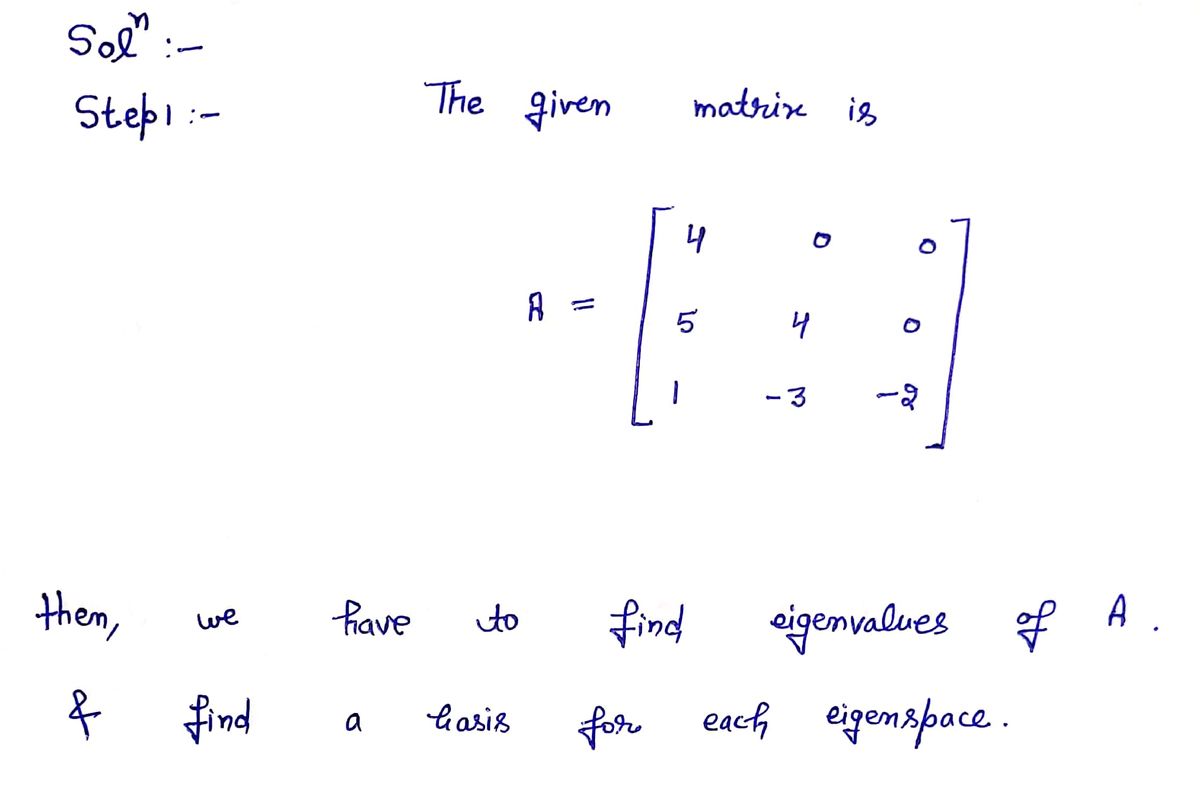 Solⁿ :-
Step1 :- The given matrix is
A = [ 4 0 0
5 4 0
1 -3 -2 ]
then, we have to find eigenvalues of A.
& find a basis for each eigenspace.